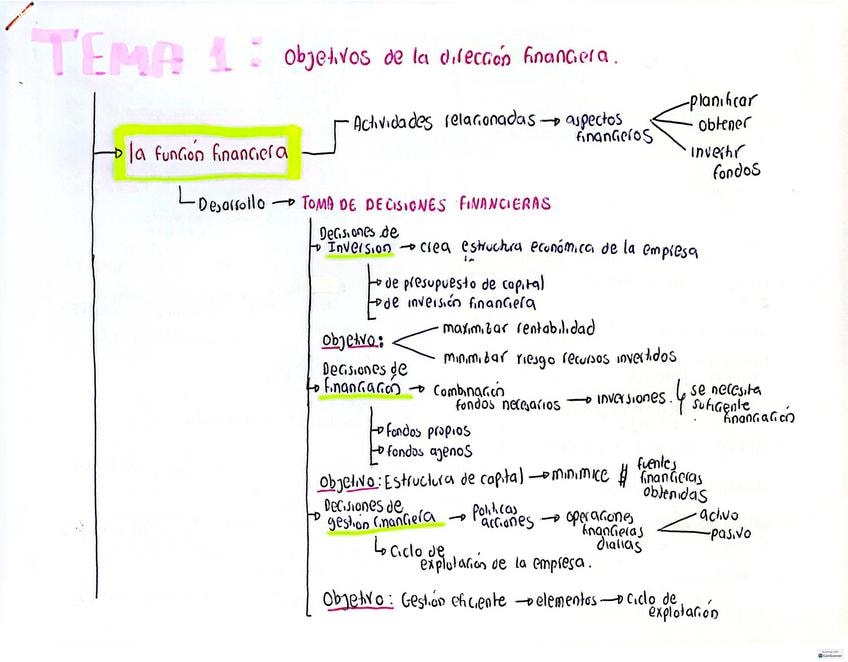 TEMA 1: Objetivos de la dirección financiera.
la función financiera
Actividades relacionadas → aspectos financieros
planificar
obtener
invertir fondos
Desarrollo → TOMA DE DECISIONES FINANCIERAS
Decisiones de
Inversion → crea estructura económica de la empresa
de presupuesto de capital
de inversión financiera
Objetivo:
maximizar rentabilidad
minimizar riesgo recursos invertidos
Decisiones de
financiación → combinación
fondos necesarios → inversiones.
se necesita
suficiente
financiación
fondos propios
fondos ajenos
Objetivo: Estructura de capital → minimice #
fuentes
financieras
obtenidas
Decisiones de
gestión financiera → Políticas
acciones → operaciones
financieras
diarias
activo
pasivo
Ciclo de
explotación de la empresa.
Objetivo: Gestión eficiente → elementos → ciclo de
explotación
CamScanner